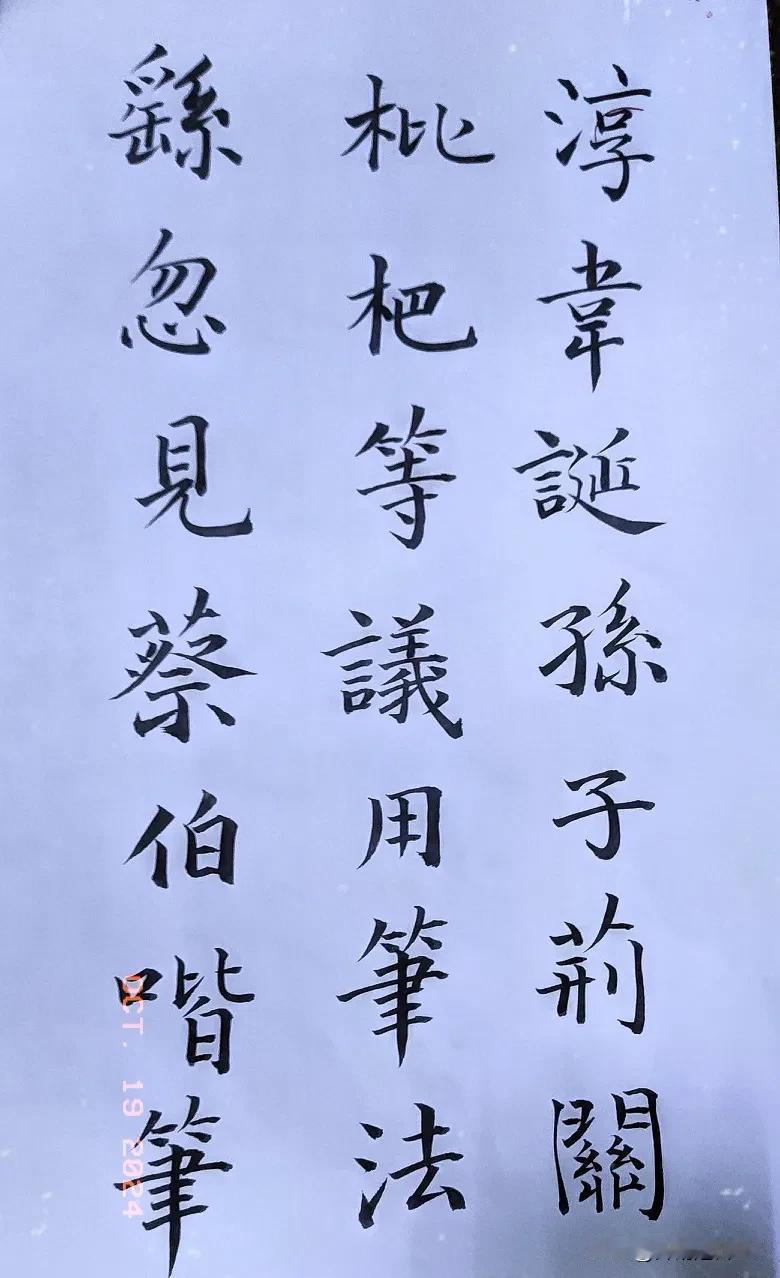 淳韋誕孫子荊關
枇杷等議用筆法
繇忽見蔡伯喈筆
OCT. 19 2024